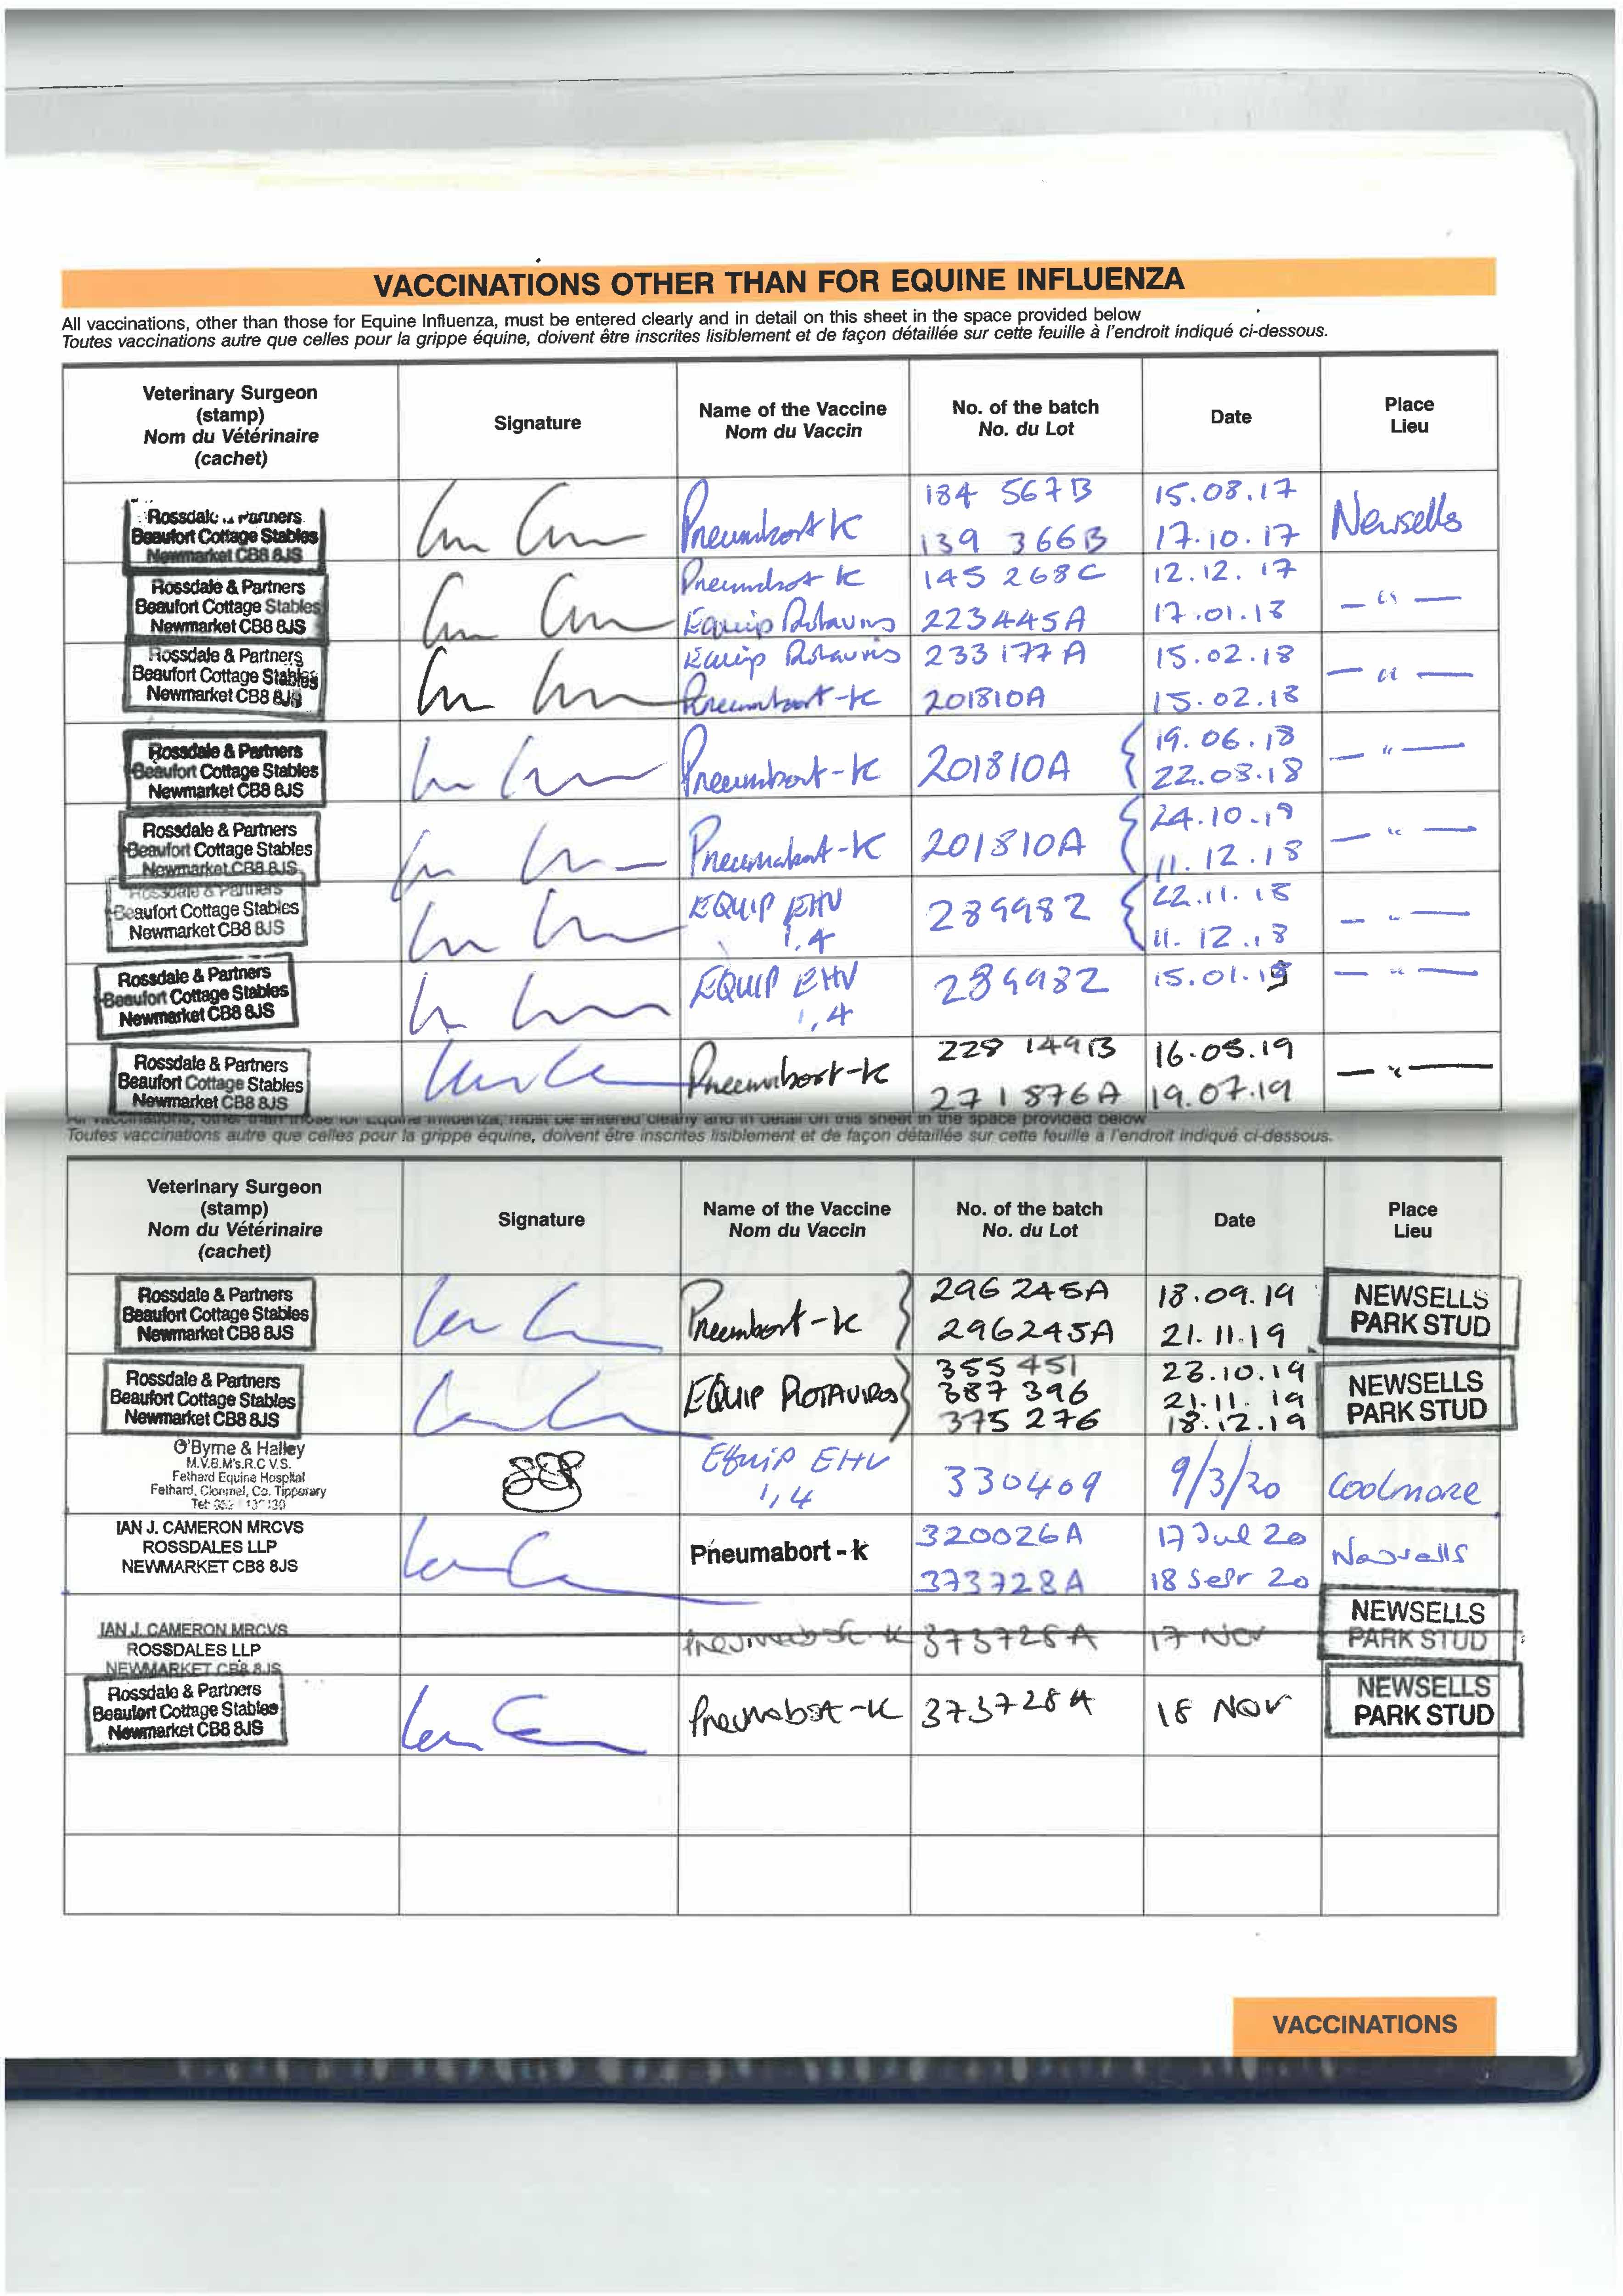 VACCINATIONS OTHER THAN FOR EQUINE INFLUENZA
All vaccinations, other than those for Equine Influenza, must be entered clearly and in detail on this sheet in the space provided below
Toutes vaccinations autre que celles pour la grippe équine, doivent être inscrites lisiblement et de façon détaillée sur cette feuille à l'endroit indiqué ci-dessous.
Veterinary Surgeon
(stamp)
Nom du Vétérinaire
(cachet)
Signature
Name of the Vaccine
Nom du Vaccin
No. of the batch
No. du Lot
Date
Place
Lieu
Rossdale & Partners
Beaufort Cottage Stables
Newmarket CB8 8JS
Pneumabort K
184 567B 15.08.17
139 366B 17.10.17
Newsells
Rossdale & Partners
Beaufort Cottage Stables
Newmarket CB8 8JS
Pneumabort K 145 268C 12.12.17
Equip Rotavirus 223445A 17.01.18
— " —
Rossdale & Partners
Beaufort Cottage Stables
Newmarket CB8 8JS
Equip Rotavirus 233177A 15.02.18
Pneumabort-K 201810A 15.02.18
— " —
Rossdale & Partners
Beaufort Cottage Stables
Newmarket CB8 8JS
Pneumabort-K 201810A
19.06.18
22.08.18
— " —
Rossdale & Partners
Beaufort Cottage Stables
Newmarket CB8 8JS
Pneumabort-K 201810A
24.10.18
11.12.18
— " —
Rossdale & Partners
Beaufort Cottage Stables
Newmarket CB8 8JS
EQUIP EHV
1,4
289982
22.11.18
11.12.18
— " —
Rossdale & Partners
Beaufort Cottage Stables
Newmarket CB8 8JS
EQUIP EHV
1,4
289982 15.01.19
— " —
Rossdale & Partners
Beaufort Cottage Stables
Newmarket CB8 8JS
Pneumabort-K
228 149B
271876A 19.07.19
— " —
All vaccinations, other than those for Equine Influenza, must be entered clearly and in detail on this sheet in the space provided below
Toutes vaccinations autre que celles pour la grippe équine, doivent être inscrites lisiblement et de façon détaillée sur cette feuille à l'endroit indiqué ci-dessous.
Veterinary Surgeon
(stamp)
Nom du Vétérinaire
(cachet)
Signature
Name of the Vaccine
Nom du Vaccin
No. of the batch
No. du Lot
Date
Place
Lieu
Rossdale & Partners
Beaufort Cottage Stables
Newmarket CB8 8JS
Pneumabort-K
296245A 18.09.19
296245A 21.11.19
NEWSELLS
PARK STUD
Rossdale & Partners
Beaufort Cottage Stables
Newmarket CB8 8JS
EQUIP ROTAVIRUS
355 451 23.10.19
387 396 21.11.19
375 276 18.12.19
NEWSELLS
PARK STUD
O'Byrne & Halley
M.V.B.M's.R.C.V.S.
Fethard Equine Hospital
Fethard, Clonmel, Co. Tipperary
Equip EHV
1,4
330409 9/3/20 Coolmore
IAN J. CAMERON MRCVS
ROSSDALES LLP
NEWMARKET CB8 8JS
Pneumabort-k
320026A 17 Jul 20
373728A 18 Sept 20
Newsells
IAN J. CAMERON MRCVS
ROSSDALES LLP
NEWMARKET CB8 8JS
Pneumabort-K 373728A 17 NOV
NEWSELLS
PARK STUD
Rossdale & Partners
Beaufort Cottage Stables
Newmarket CB8 8JS
Pneumabort-K 373728A 18 NOV
NEWSELLS
PARK STUD
VACCINATIONS